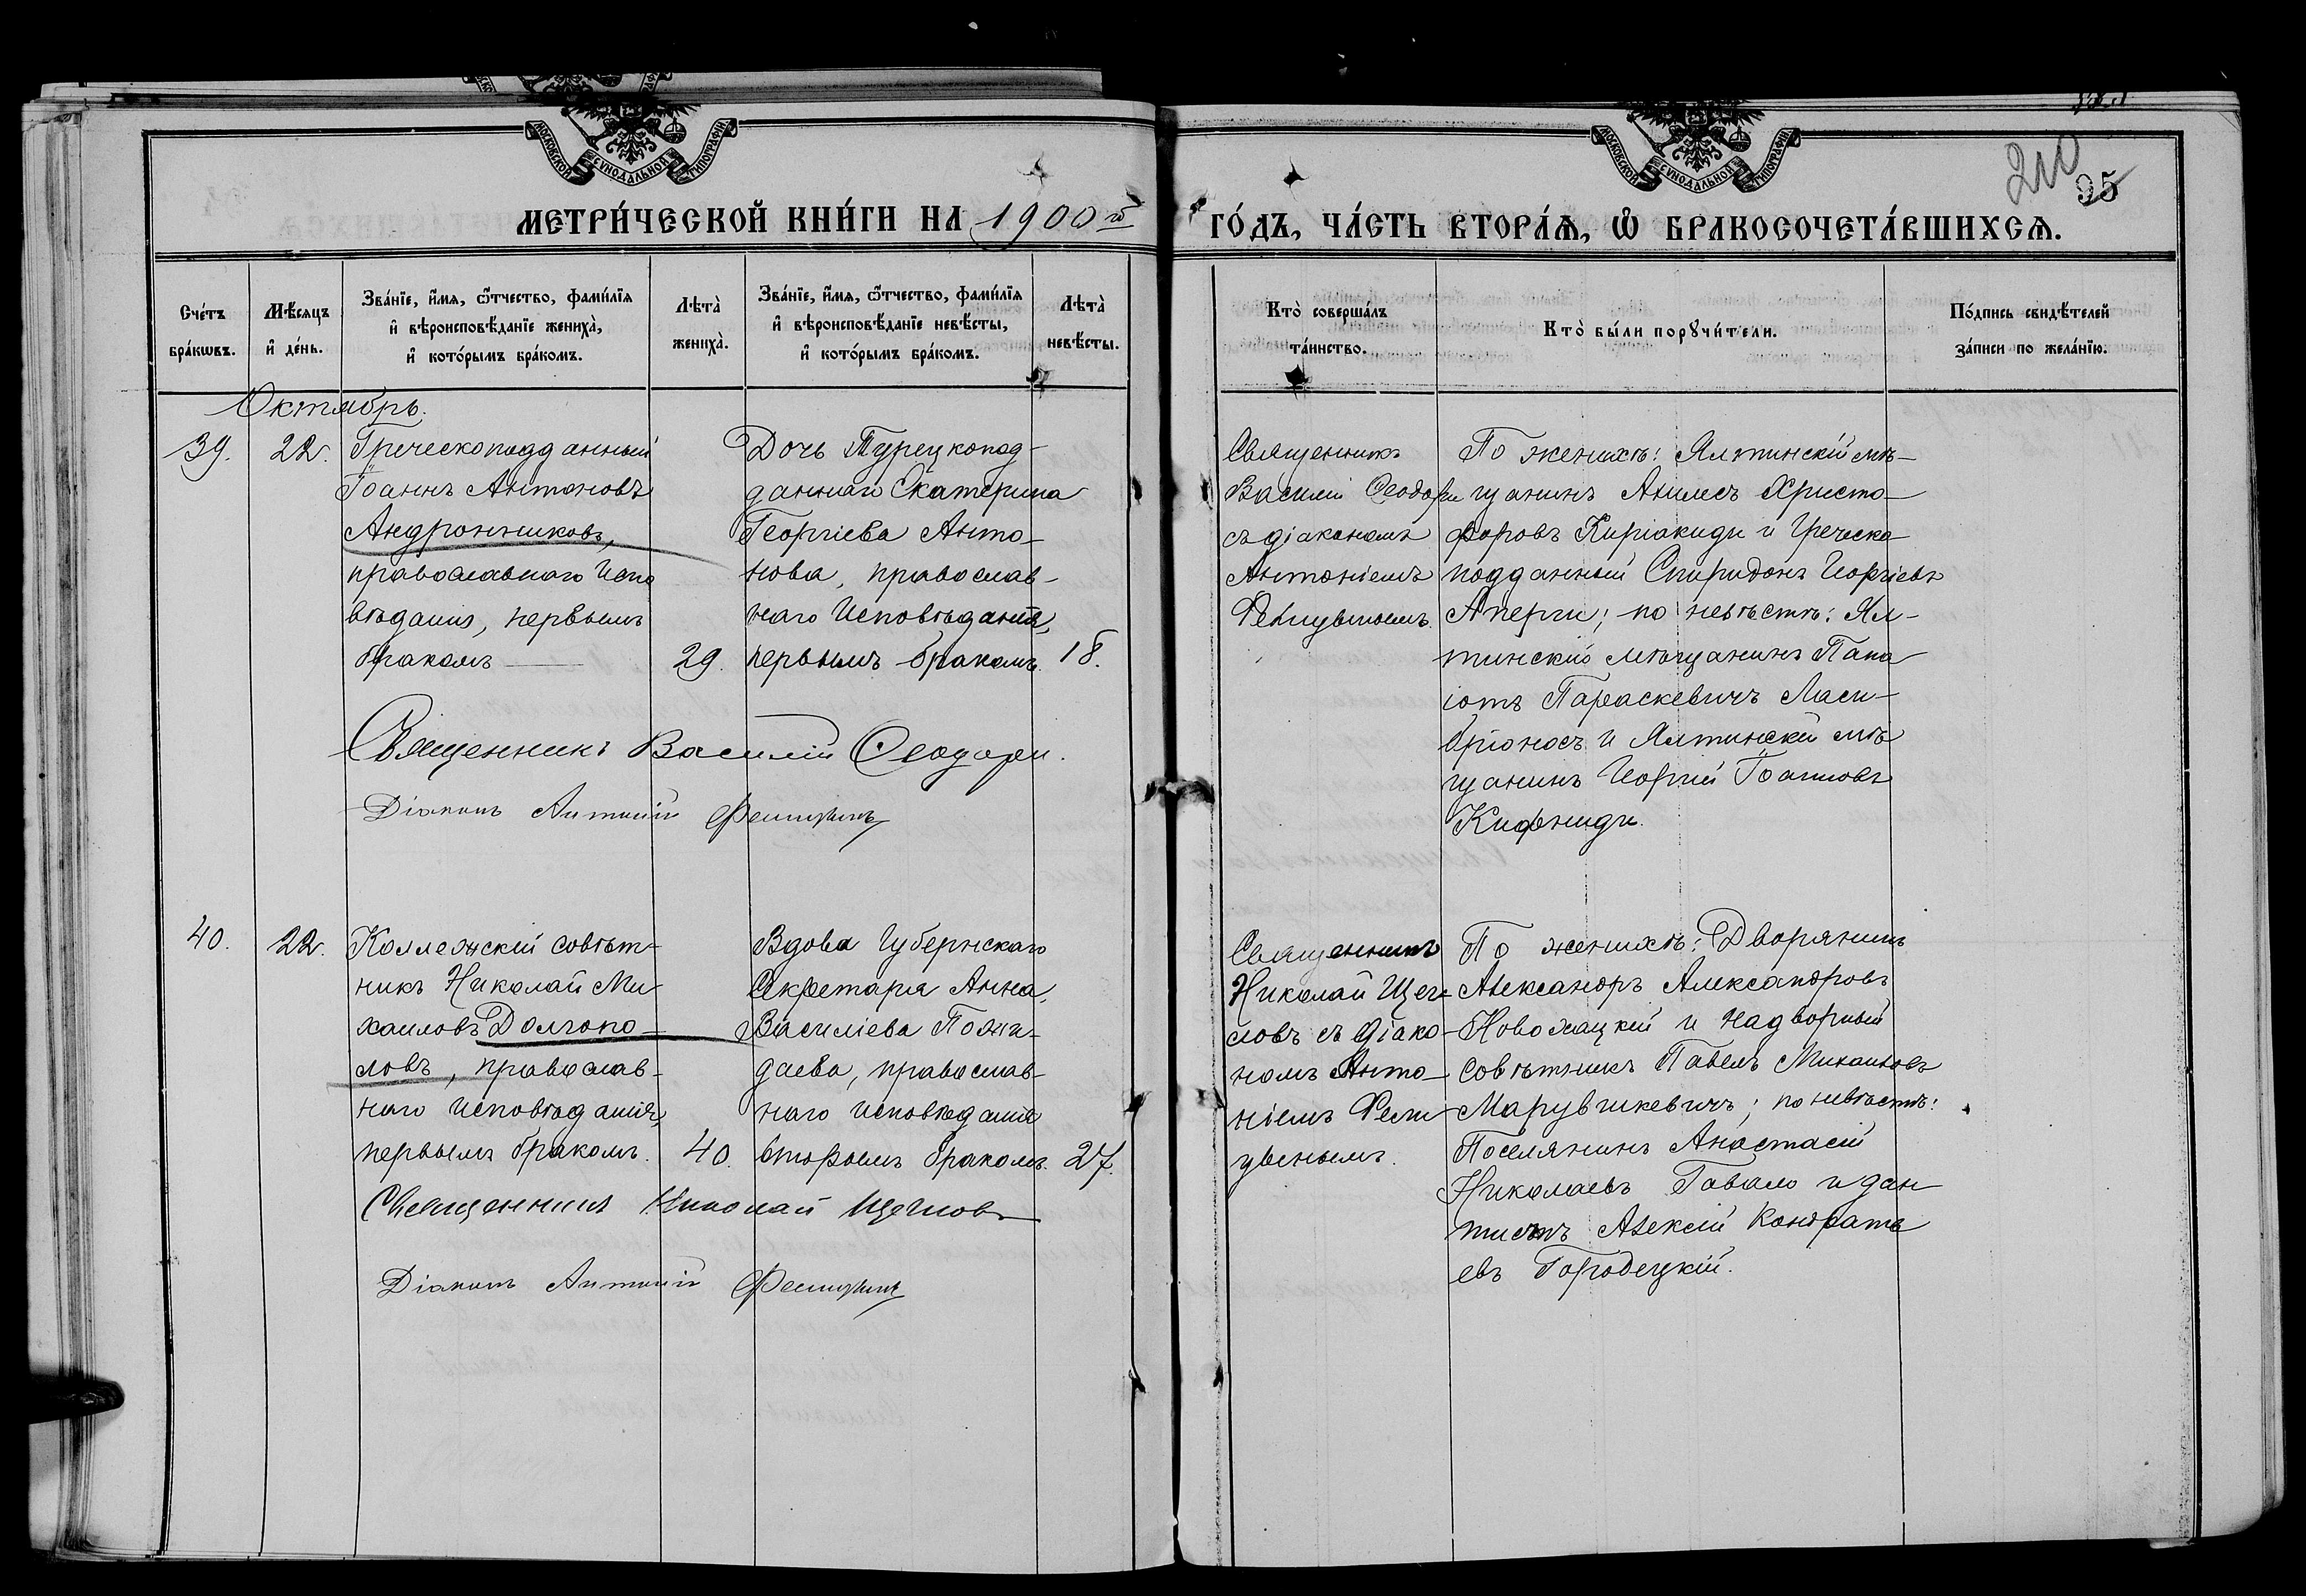 МОСКОВСКОЙ СѴНОДАЛЬНОЙ ТИПОГРАФІИ
МОСКОВСКОЙ СѴНОДАЛЬНОЙ ТИПОГРАФІИ
210
95
МЕТРИ́ЧЕСКОЙ КНИ́ГИ НА 1900й
ГО́ДЪ, ЧА́СТЬ ВТОРА́Ѧ, Ѽ БРАКОСОЧЕТА́ВШИХСѦ.
Сче́тъ бра́кѡвъ.
Мѣ́сяцъ и де́нь.
Зва́нїе, и́мѧ, ѻ́тчество, фами́лїѧ
и вѣроисповѣ́данїе жениха̀,
и кото́рымъ бра́комъ.
Лѣта̀ жениха̀.
Зва́нїе, и́мѧ, ѻ́тчество, фами́лїѧ
и вѣроисповѣ́данїе невѣ́сты,
и кото́рымъ бра́комъ.
Лѣта̀ невѣ́сты.
Кто̀ соверша́лъ
та́инство.
Кто̀ бы́ли порꙋчи́тели.
По́дпись свидѣ́телей
за́писи по жела́нїю.
Октябрь.
39.
22.
Греческоподданный
Іоаннъ Антоновъ
Андронниковъ,
православнаго испо
вѣданія, первымъ
бракомъ
29.
Дочь Турецкопод-
даннаго Екатерина
Георгіева Анто-
нова, православ-
наго исповѣданія,
первымъ бракомъ.
18.
Священникъ
Василій Ѳеодори
съ діакономъ
Антоніемъ
По женихѣ: Ялтинскій мѣ-
щанинъ Ахилесъ Христо-
форовъ Киріакиди и Греческо
подданный Спиридонъ Георгіевъ
Аперги; по невѣстѣ: Ял-
тинскій мѣщанинъ Пана
іотъ Параскевичъ Ласи-
и Ялтинскій мѣ
щанинъ Георгій Іоанновъ
Кифениди.
Священникъ Василій Ѳеодори.
Діаконъ Антоній
40.
22.
Коллежскій совѣт-
никъ Николай Ми
хаиловъ Долгопо-
ловъ, православ-
наго исповѣданія,
первымъ бракомъ.
40.
Вдова Губернскаго
Секретаря Анна
Василіева Пожи-
даева, православ-
наго исповѣданія
вторымъ бракомъ.
27.
Священникъ
Николай Щег-
ловъ съ діако-
номъ Анто-
ніемъ
По женихѣ: Дворянинъ
Александръ Александровъ
Новохацкій и Надворный
Совѣтникъ Павелъ Михаиловъ
Марушкевичъ; по невѣстѣ:
Поселянинъ Анастасій
Николаевъ Гавало и дан
тистъ Алексій Кондрать
евъ Городецкій.
Священникъ Николай Щегловъ
Діаконъ Антоній